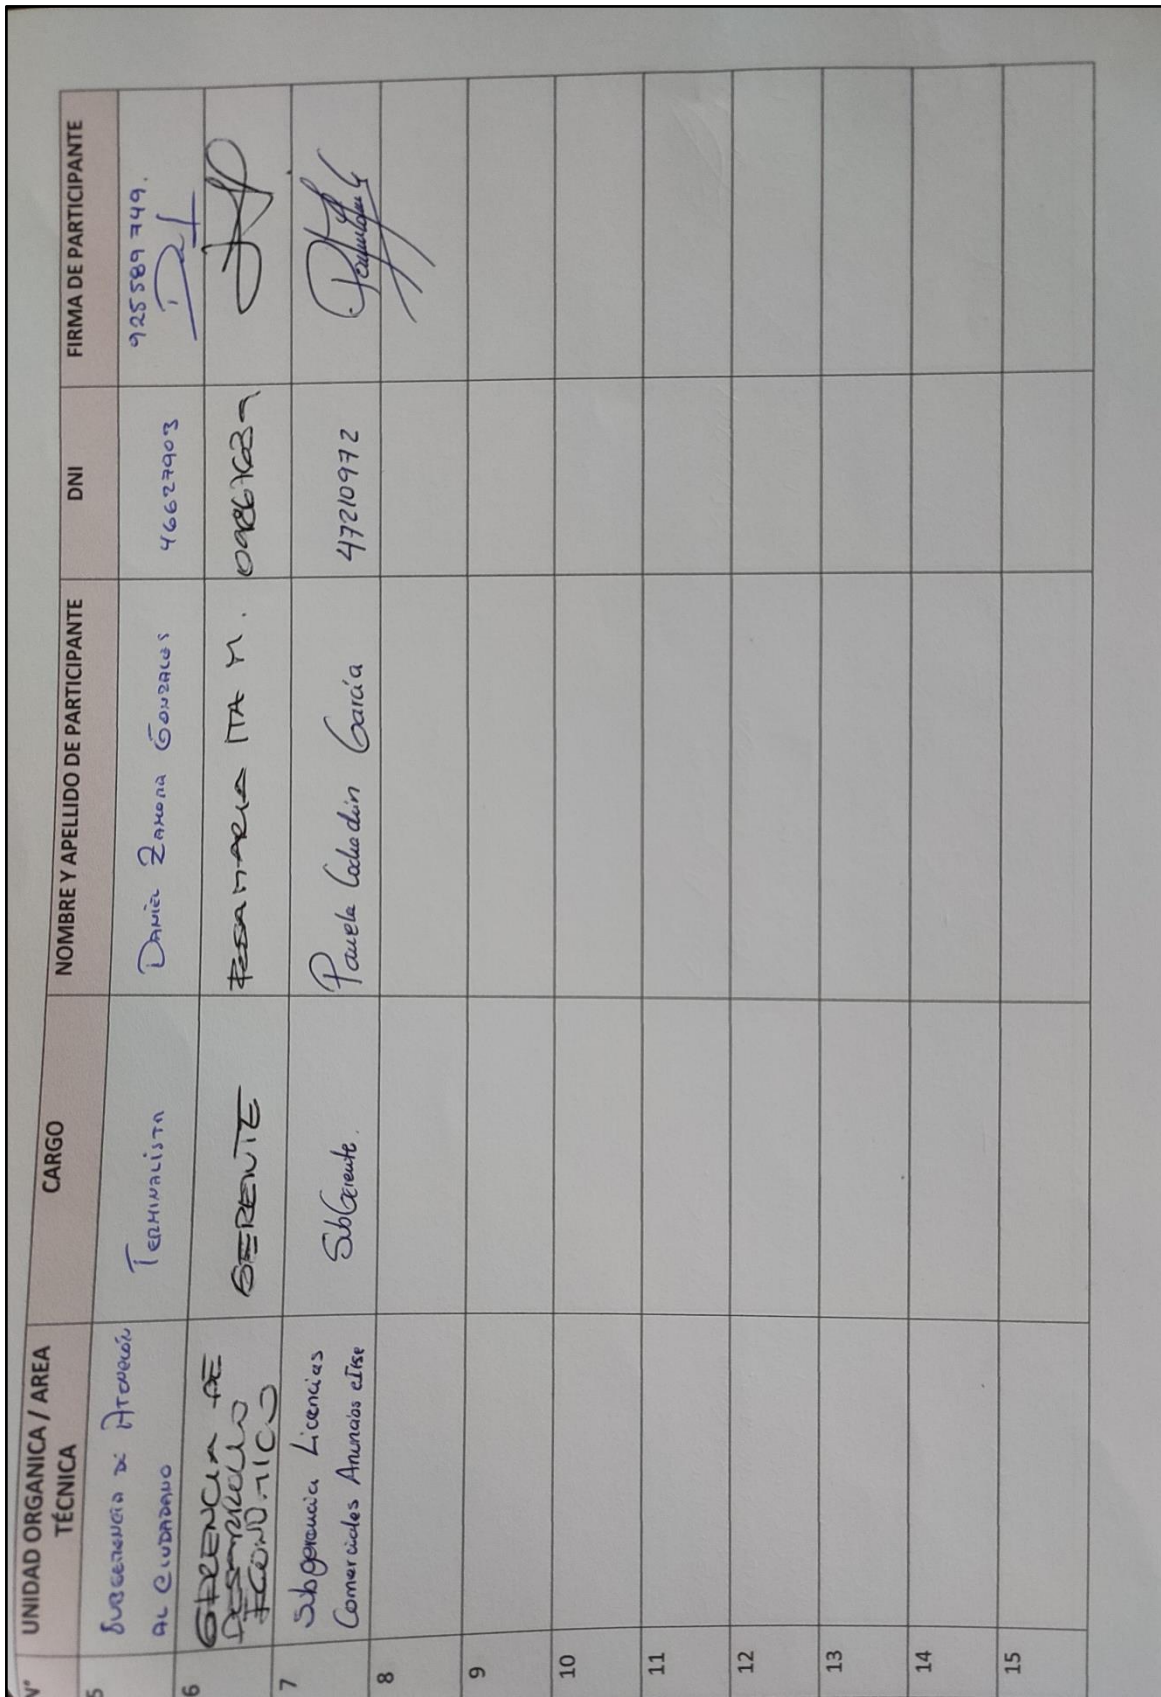 N° UNIDAD ORGANICA / AREA TÉCNICA CARGO NOMBRE Y APELLIDO DE PARTICIPANTE DNI FIRMA DE PARTICIPANTE
5 SUBGERENCIA DE ATENCIÓN AL CIUDADANO TERMINALISTA DANIEL ZAMORA GONZALES 46627903 925589749.
6 GERENCIA DE DESARROLLO ECONOMICO GERENTE ROSA MARIA ITA M. 09867639
7 Subgerencia Licencias Comerciales Anuncios e Itse SubGerente. Pamela Cochadin García 47210972
8
9
10
11
12
13
14
15